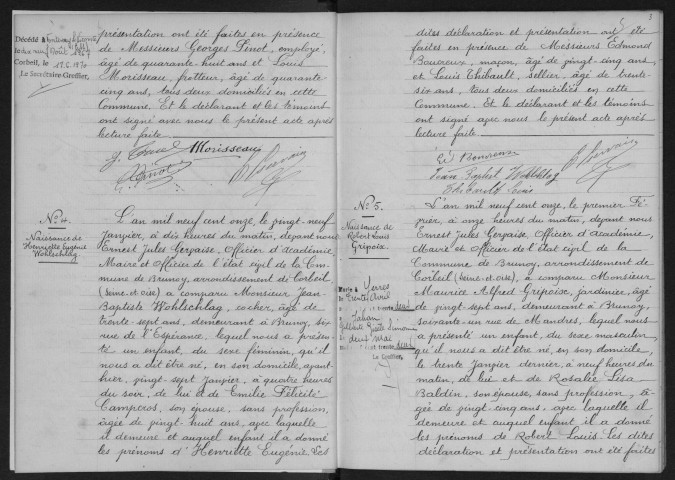 Décédé à
Corbeil, le 17.6.1970
Le Secrétaire-Greffier,
présentation ont été faites en présence
de Messieurs Georges Pinot, employé,
âgé de quarante-huit ans et Louis
Morisseau, frotteur, âgé de quarante-
cinq ans, tous deux domiciliés en cette
Commune. Et le déclarant et les témoins
ont signé avec nous le présent acte après
lecture faite
Morisseau
N° 4.
Naissance de
Henriette Eugénie
Wohlschlag.
L'an mil neuf cent onze, le vingt-neuf
Janvier, à dix heures du matin, devant nous
Ernest Jules Gervaise, Officier d'Académie,
Maire et Officier de l'état civil de la Com-
mune de Brunoy, arrondissement de Corbeil
(Seine-et-Oise) a comparu Monsieur Jean-
Baptiste Wohlschlag, cocher, âgé de
trente-sept ans, demeurant à Brunoy, six
rue de l'Espérance, lequel nous a présen-
té un enfant, du sexe féminin, qu'il
nous a dit être né, en son domicile, avant-
hier, vingt-sept Janvier, à quatre heures
du soir, de lui et de Emilie Félicité
Camperos, son épouse, sans profession,
âgée de vingt-huit ans, avec laquelle
il demeure et auquel enfant il a donné
les prénoms d'Henriette Eugénie. Les
dites déclaration et présentation ont été
faites en présence de Messieurs Edmond
Bouvreux, maçon, âgé de vingt-cinq ans,
et Louis Thibault, sellier, âgé de trente-
six ans, tous deux domiciliés en cette
Commune. Et le déclarant et les témoins
ont signé avec nous le présent acte après
lecture faite
Jean Baptist Wohlschlag
N° 5.
Naissance de
Robert Louis
Gripoix.
Marié à Yerres
le trente Avril
deux mai
Le Greffier,
L'an mil neuf cent onze, le premier Fé-
vrier, à onze heures du matin, devant nous
Ernest Jules Gervaise, Officier d'Académie,
Maire et Officier de l'état civil de la
Commune de Brunoy, arrondissement de
Corbeil (Seine-et-Oise), a comparu Monsieur
Maurice Alfred Gripoix, jardinier, âgé
de vingt-sept ans, demeurant à Brunoy,
soixante-un rue de Mandres, lequel nous
a présenté un enfant, du sexe masculin,
qu'il nous a dit être né, en son domicile,
le trente Janvier dernier, à neuf heures du
matin, de lui et de Rosalie Lisa
Baldin, son épouse, sans profession, â-
gée de vingt-cinq ans, avec laquelle il
demeure et auquel enfant il a donné
les prénoms de Robert Louis. Les dites
déclaration et présentation ont été faites